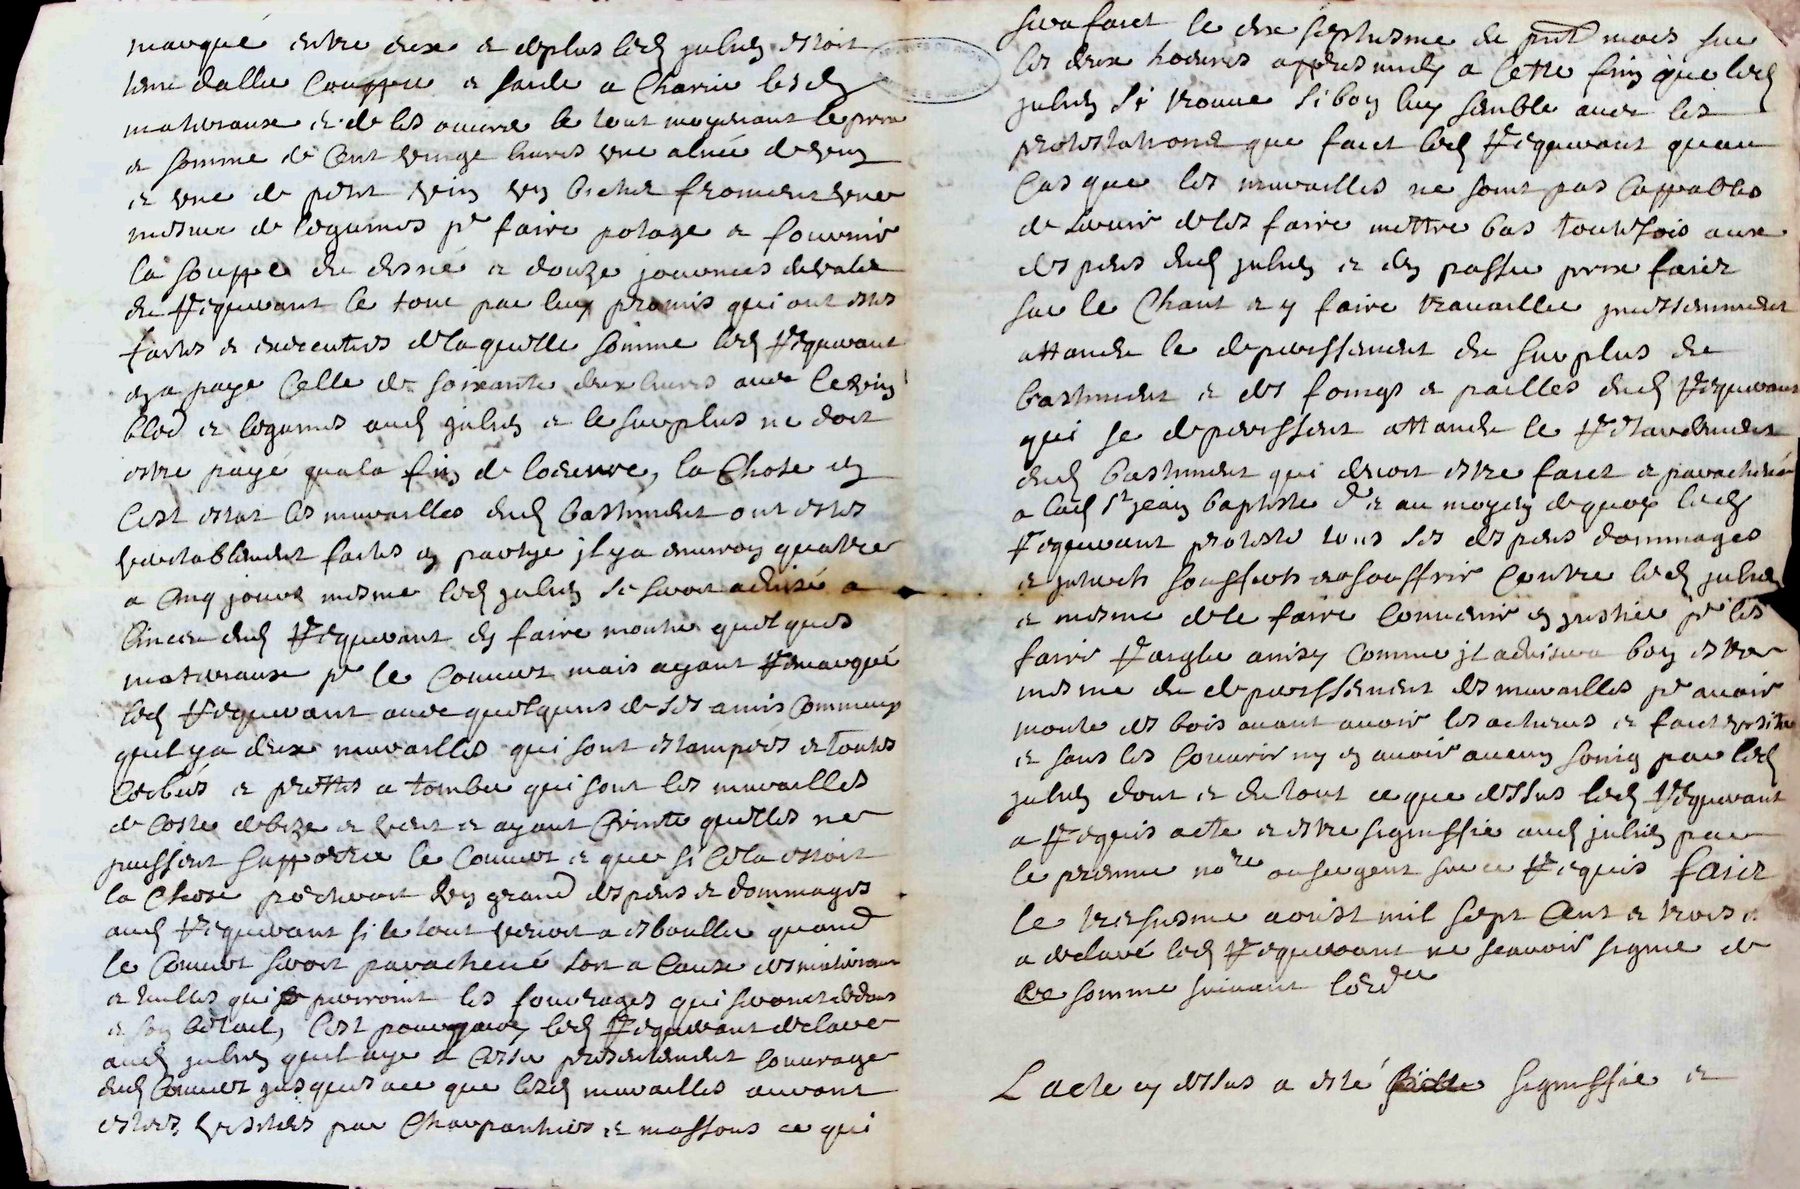 marqué entre eux et deplus led julien estoit
tenu daller coupper et faire a charier lesd
materiaux et de les ouvrer le tout moyenant le prix
et somme de cent vingt livres une asnée de vin
et une de petit vin un bichet froment une
mesure de legumes pr faire potage et fournir
la souppe du disné et douze journées de valet
du requerant le tout par luy promis qui ont estes
faites et executées de laquelle somme led requerant
en a payé celle de soixante deux livres avec le vin
bled et legumes aud julien et le surplus ne doit
estre payé qua la fin de loeuvre, la chose en
cest estat les murailles dud bastiment ont estes
veritablement faites en partye il y a environ quatre
a cinq jours mesme led julien se seroit advisé a
linceu dud requerant den faire monter quelques
materiaux pr le couvert mais ayant remarqué
led requerant avec quelquuns de ses amis communs
quil y a deux murailles qui sont estampees et toutes
corbées et prettes a tomber qui sont les murailles
de costé de bize et vent et ayant crainte quelles ne
puissent supporter le couvert et que si cela estoit
la chose porteroit un grand despens et dommages
aud requerant si le tout venoit a esbouller quand
le couvert seroit parachevé tant a cause des materiaux
et tuilles qui se perroint les fourrages qui seront dedans
et son bétail, cest pourquoy led requerant declare
aud julien quil aye a cesser presentement louvrage
dud couvert jusques a ce que lesd murailles auront
estées visitées par charpantiers et massons ce qui
sera faict le dix septiesme du pnt mois sur
les deux heures appres midy a cette fin que led
julien si trouve si bon luy semble avec les
protestations que faict led requerant quau
cas que les murailles ne soint pas cappables
de servir de les faire mettre bas toutesfois aux
despens dud julien et den passer prix faict
sur le chant et y faire travailler incessamment
attandu le deperissement du surplus du
bastiment et des foings et pailles dud requerant
qui se deperissent attandu le retardement
dud bastiment qui devoit estre faict et parachevé
a lad st jean baptiste dre et au moyen de quoy led
requerant proteste tous ses despens dommages
et interets soufferts et a souffrir contre led julien
et mesme de le faire convenir en justice pr les
faire regler ainsy comme il advisera bon estre
mesme du deperissement des murailles pr avoir
monté des bois avant avoir les achevés et faict visiter
et sans les couvrir ny en avoir aucun soing par led
julien dont et du tout ce que dessus led requerant
a requis acte et estre signiffié aud julien par
le premier nore ou sergent sur ce requis faict
le treisiesme aoust mil sept cent et trois et
a declaré led requerant ne scavoir signer de
ce sommé suivant lordce
Lacte cy dessus a esté signiffié et